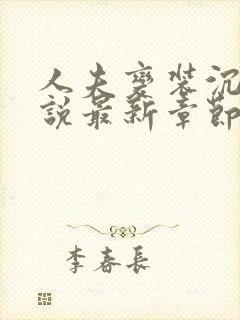 人夫变装沉
說最新章節
李春長